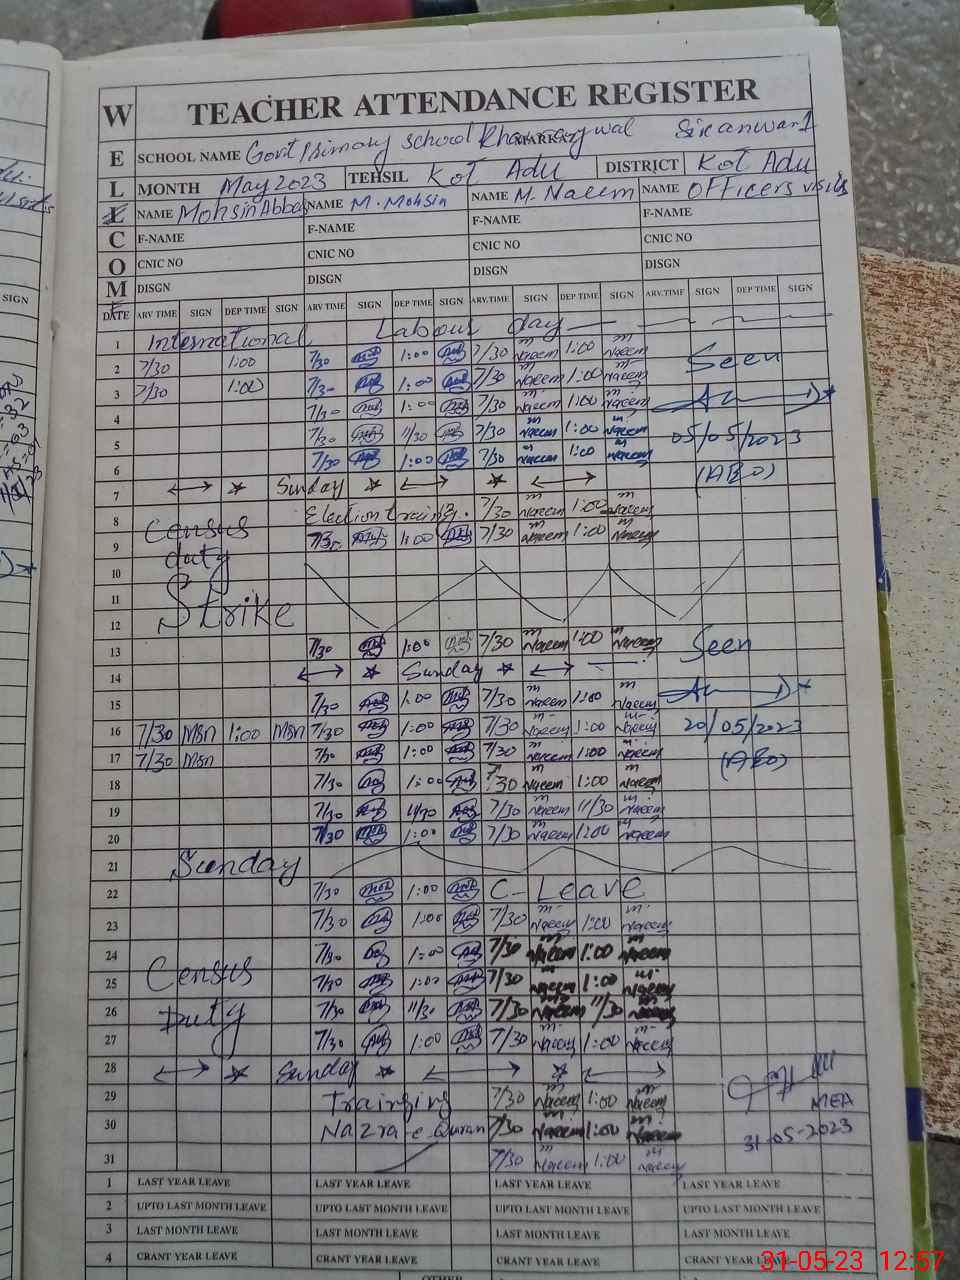 W
TEACHER ATTENDANCE REGISTER
MARKAZ
E SCHOOL NAME Govt Primary School
L MONTH May 2023 TEHSIL Kot Adu DISTRICT Kot Adu
NAME Mohsin Abbas NAME M. Mohsin NAME M. Naeem NAME Officers visits
C F-NAME F-NAME F-NAME F-NAME
O CNIC NO CNIC NO CNIC NO CNIC NO
M DISGN DISGN DISGN DISGN
DATE ARV TIME SIGN DEP TIME SIGN ARV TIME SIGN DEP TIME SIGN ARV.TIME SIGN DEP TIME SIGN ARV.TIME SIGN DEP TIME SIGN
1 International Labour day
2 7/30 1:00 7/30 1:00 7/30 m Naeem 1:00 m Naeem Seen
3 7/30 1:00 7/30 1:00 7/30 m Naeem 1:00 m Naeem
4 7/30 1:00 7/30 m Naeem 1:00 m Naeem
5 7/30 11/30 7/30 m Naeem 1:00 m Naeem 05/05/2023
6 7/30 1:00 7/30 m Naeem 1:00 m Naeem (AEO)
7 Sunday
8 Census Election training. 7/30 m Naeem 1:00 m Naeem
9 duty 7/30 1:00 7/30 m Naeem 1:00 m Naeem
10
11 Strike
12
13 7/30 1:00 7/30 m Naeem 1:00 m Naeem Seen
14 Sunday
15 7/30 1:00 7/30 m Naeem 1:00 m Naeem
16 7/30 Msn 1:00 Msn 7/30 1:00 7/30 m Naeem 1:00 m Naeem 20/05/2023
17 7/30 Msn 7/30 1:00 7/30 m Naeem 1:00 m Naeem (AEO)
18 7/30 1:00 7/30 m Naeem 1:00 m Naeem
19 7/30 11/30 7/30 m Naeem 11/30 m Naeem
20 7/30 1:00 7/30 m Naeem 1:00 m Naeem
21 Sunday
22 7/30 1:00 C-Leave
23 7/30 1:00 7/30 m Naeem 1:00 m Naeem
24 7/30 1:00 7/30 m Naeem 1:00 m Naeem
25 Census 7/30 1:00 7/30 m Naeem 1:00 m Naeem
26 Duty 7/30 11/30 7/30 Naeem 11/30 m Naeem
27 7/30 1:00 7/30 m Naeem 1:00 m Naeem
28 Sunday
29 Training 7/30 m Naeem 1:00 m Naeem MEA
30 Nazra-e-Quran 7/30 m Naeem 1:00 m Naeem 31-05-2023
31 7/30 m Naeem 1:00 m Naeem
1 LAST YEAR LEAVE LAST YEAR LEAVE LAST YEAR LEAVE LAST YEAR LEAVE
2 UPTO LAST MONTH LEAVE UPTO LAST MONTH LEAVE UPTO LAST MONTH LEAVE UPTO LAST MONTH LEAVE
3 LAST MONTH LEAVE LAST MONTH LEAVE LAST MONTH LEAVE LAST MONTH LEAVE
4 CRANT YEAR LEAVE CRANT YEAR LEAVE CRANT YEAR LEAVE CRANT YEAR LEAVE
OTHER
SIGN
31-05-23 12:57